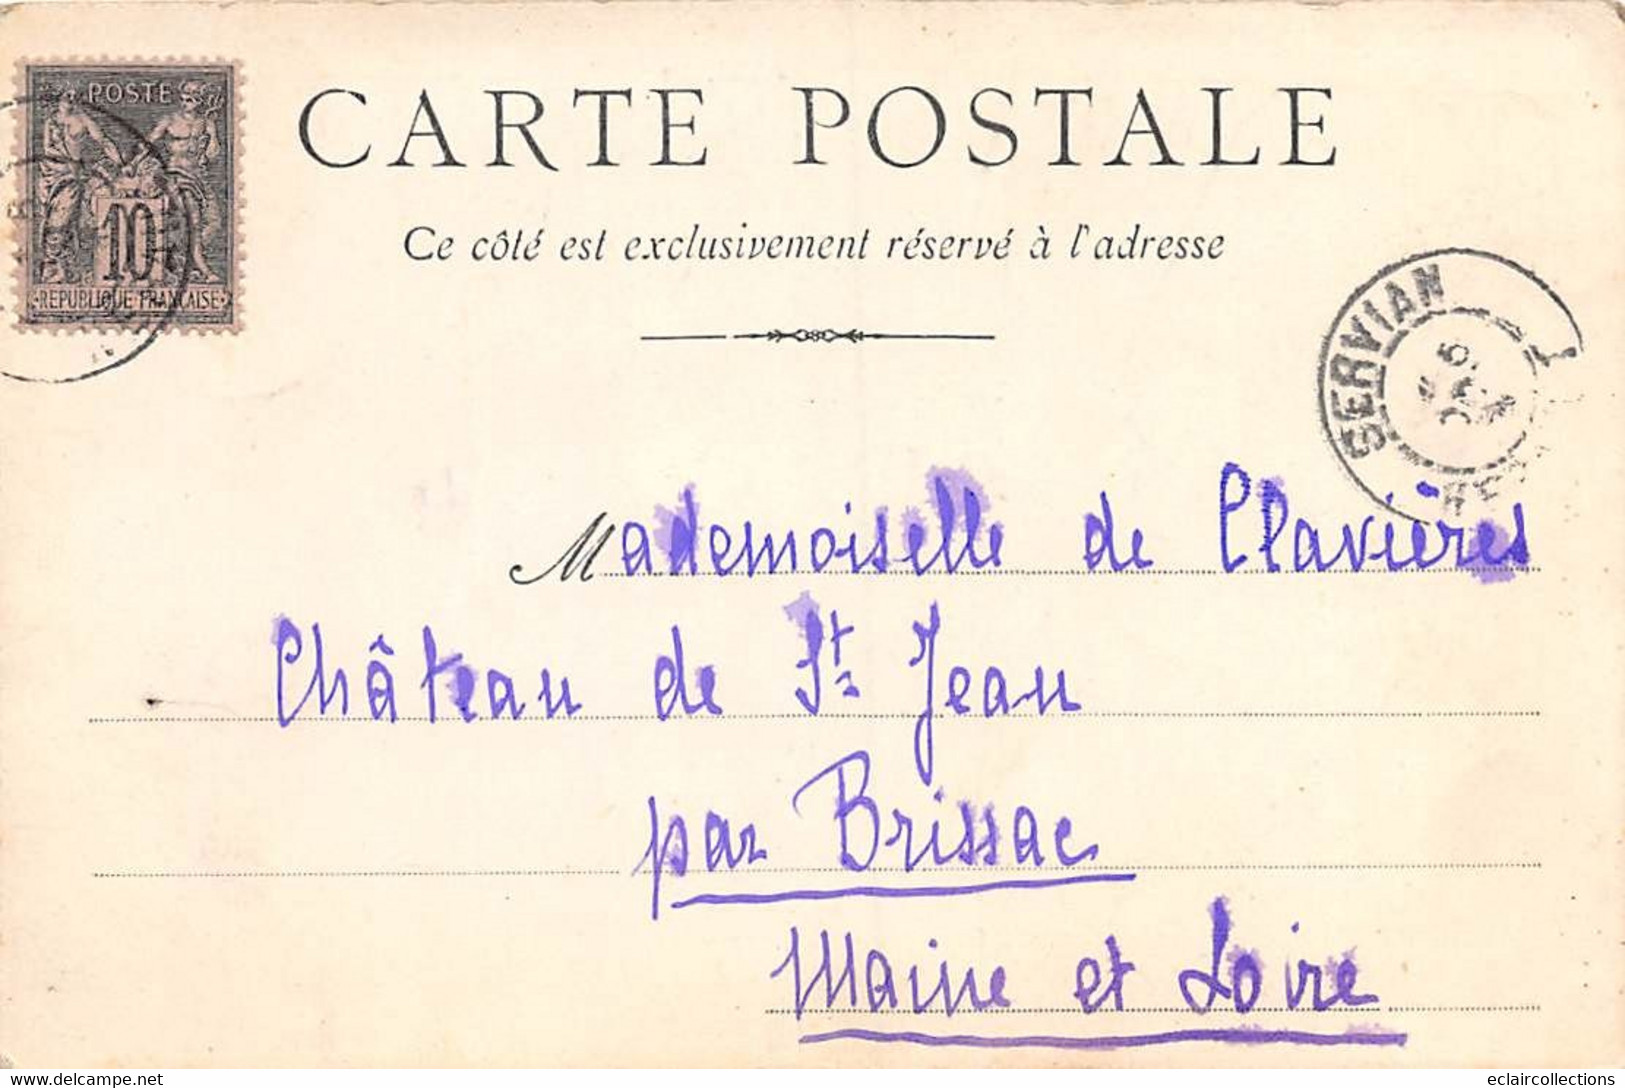 POSTE
10
REPUBLIQUE FRANÇAISE
CARTE POSTALE
Ce côté est exclusivement réservé à l'adresse
SERVIAN
Mademoiselle de Clavières
Château de St Jean
par Brissac
Maine et Loire
eclaircollections